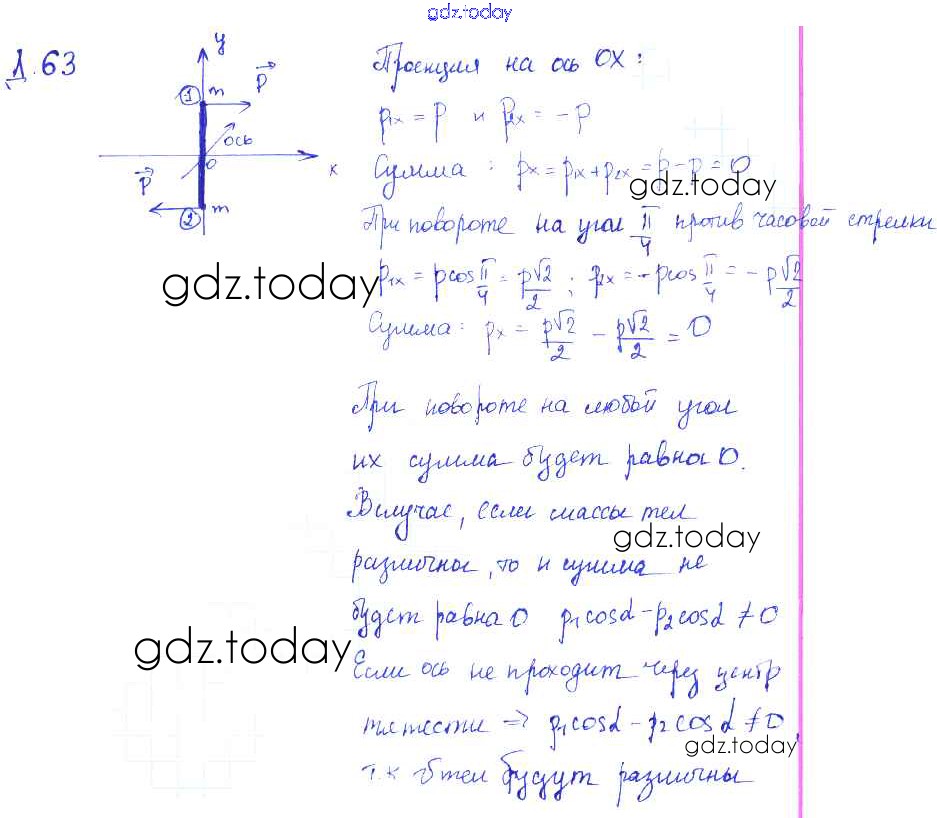 gdz.today
Д.63
y
p
1
m
ось
O
x
p
2
m
Проекция на ось OX:
p₁ₓ = p и p₂ₓ = -p
Сумма: pₓ = p₁ₓ + p₂ₓ = p - p = 0
gdz.today
При повороте на угол π/4 против часовой стрелки
gdz.today
p₁ₓ = pcos π/4 = p√2/2; p₂ₓ = -pcos π/4 = -p√2/2
Сумма: pₓ = p√2/2 - p√2/2 = 0
При повороте на любой угол
их сумма будет равна 0.
В случае, если массы тел
gdz.today
различны, то и сумма не
будет равна 0 p₁cosα - p₂cosα ≠ 0
gdz.today
Если ось не проходит через центр
тяжести ⇒ p₁cosα - p₂cosα ≠ 0,
gdz.today
т.к тел будут различны